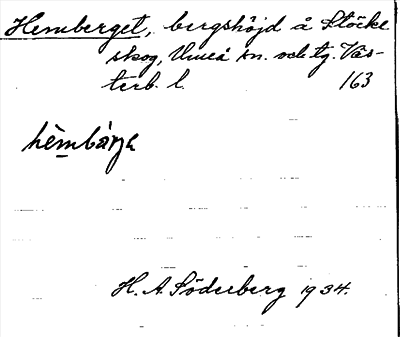 Hemberget, bergshöjd å Stöcke
skog, Umeå sn. och tg. Väs-
terb. l. 163
hèmbàrje
H. A. Söderberg 1934.